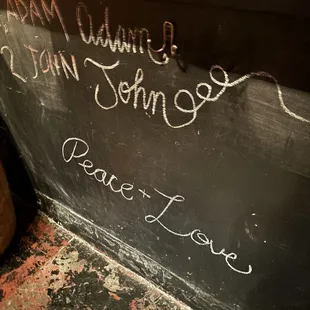 ADAM Adam
2 JOHN John
Peace + Love